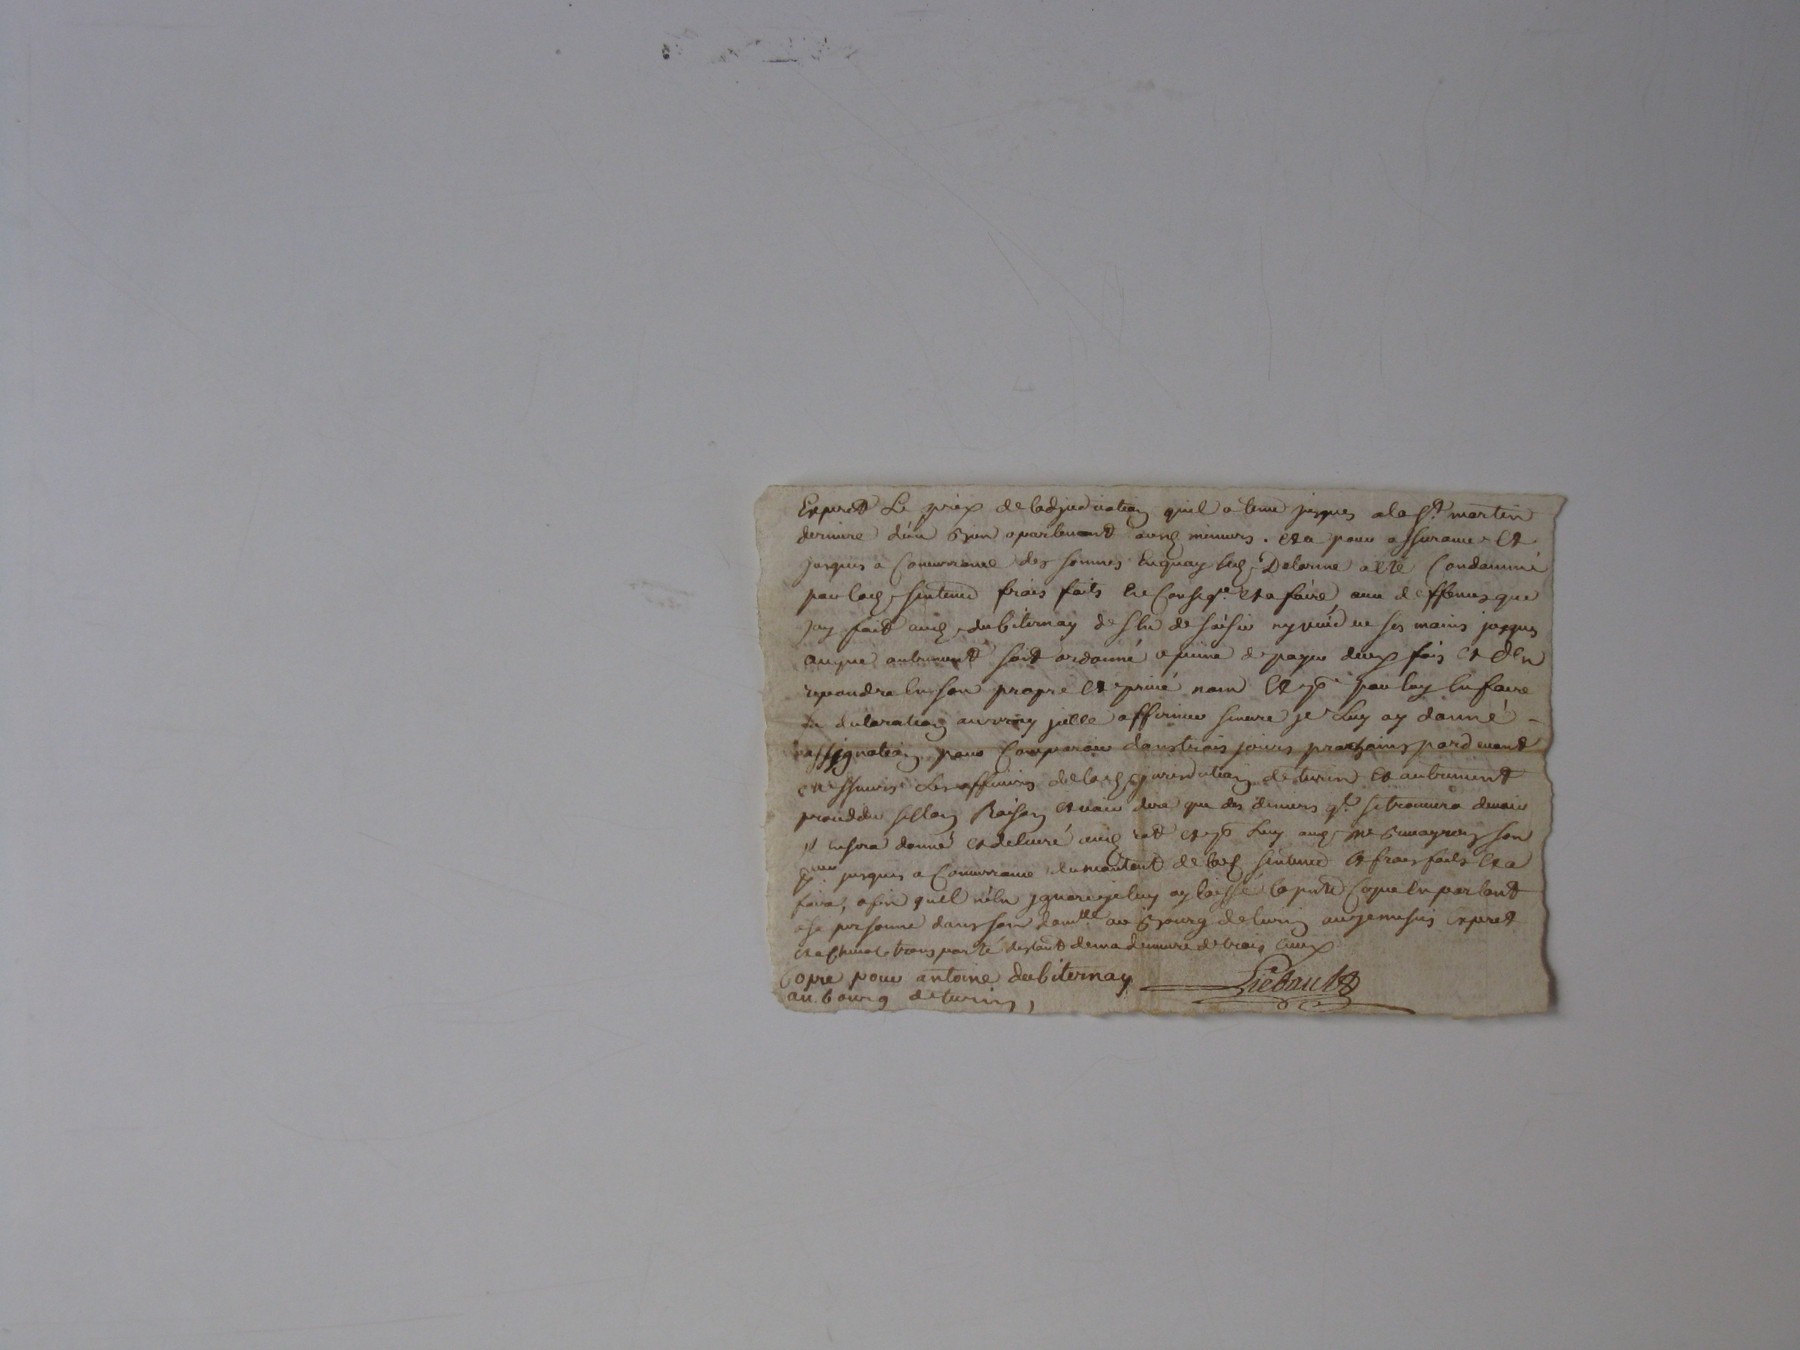 Exprest Le prix de ladjudication quil a tenu jusques ala St martin
derniere d'un bien apartenant ausd mineurs. et a pour assurance et
jusques a Concurrance des sommes Enquoy led Delorme a été Condamné
par lad sentence frais faits En Conseqe. et a faire avec deffences que
jay fait aud dubiternay de se de saisir ny vuider ses mains jusques
aceque autrement soit ordonné a peine de payer deux fois et den
repondre En son propre et privé nom Et pr par luy En faire
la declaration auvray jcelle affirmer sincere je Luy ay donné
assignation pour Comparoir dans trois jours prochains pardevant
messieurs Les officiers de lad jurisdiction de turin et autrement
proceder sellon Raison et voir dire que des deniers qui se trouvera devoir
il ensera donné et delivré aud et Luy aud Me son
jusques a Concurrance du montant de lad sentence et frais faits et a
faire, afin quil nen jgnore je luy ay laissé la pnte Copie En parlant
a sa personne dans son domlle au bourg de turin auquel je me suis Exprest
transporté distant de ma demeure de trois lieux
Copie pour antoine dubiternay Liebault
au bourg de turin,